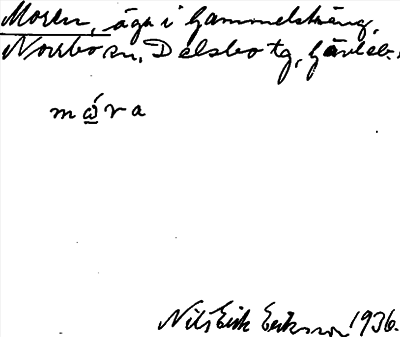 Moren, äga i Gammelsträng,
Norrbo sn, Delsbo tg, Gävleb.
måva
Nils Erik Eriksson 1936.